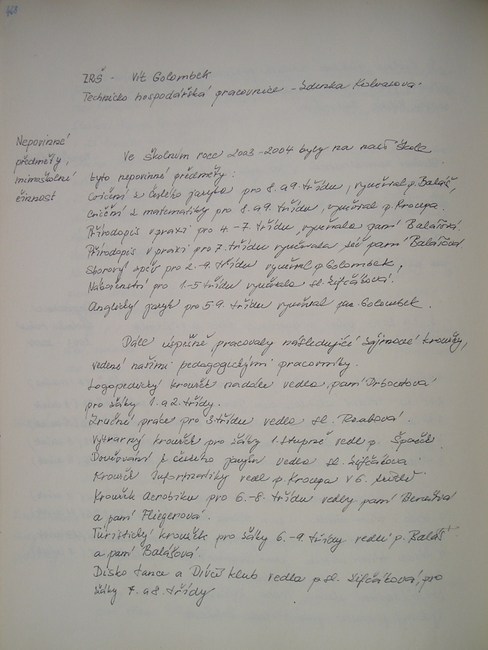 ZRŠ - Vít Golombek
Technicko hospodářská pracovnice - Zdenka
Nepovinné
předměty,
mimoškolní
činnost
Ve školním roce 2003-2004 byly na naší škole
tyto nepovinné předměty:
Cvičení z českého jazyka pro 8. a 9 třídu, vyučoval p. Baláš,
Cvičení z matematiky pro 8. a 9 třídu, vyučoval p. Kroupa.
Přírodopis v praxi pro 4.-7 třídu, vyučovala paní Balášová
Přírodopis v praxi pro 7. třídu vyučovala též paní Balášová
Sborový zpěv pro 2.-9. třídu vyučoval p Golombek,
Náboženství pro 1-5 třídu vyučovala sl.
Anglický jazyk pro 5 9. třídu vyučoval pan Golombek.
Dále úspěšně pracovaly následující zájmové kroužky,
vedené našimi pedagogickými pracovníky.
Logopedický kroužek nadále vedla, paní
pro žáky 1. a 2. třídy.
Ruční práce pro 3 třídu vedla sl.
Výtvarný kroužek pro žáky 1. stupně vedl p. Špaček
Doučování z českého jazyka vedla sl.
Kroužek Informatiky vedl p. Kroupa v 6.
Kroužek Aerobiku pro 6.-8. třídu vedly paní
a paní Fliegerová.
Turistický kroužek pro žáky 6.-9 třídy vedli p. Baláš
a paní Balášová.
Disko tance a Dívčí klub vedla p. sl. pro
žáky 7. a 8 třídy